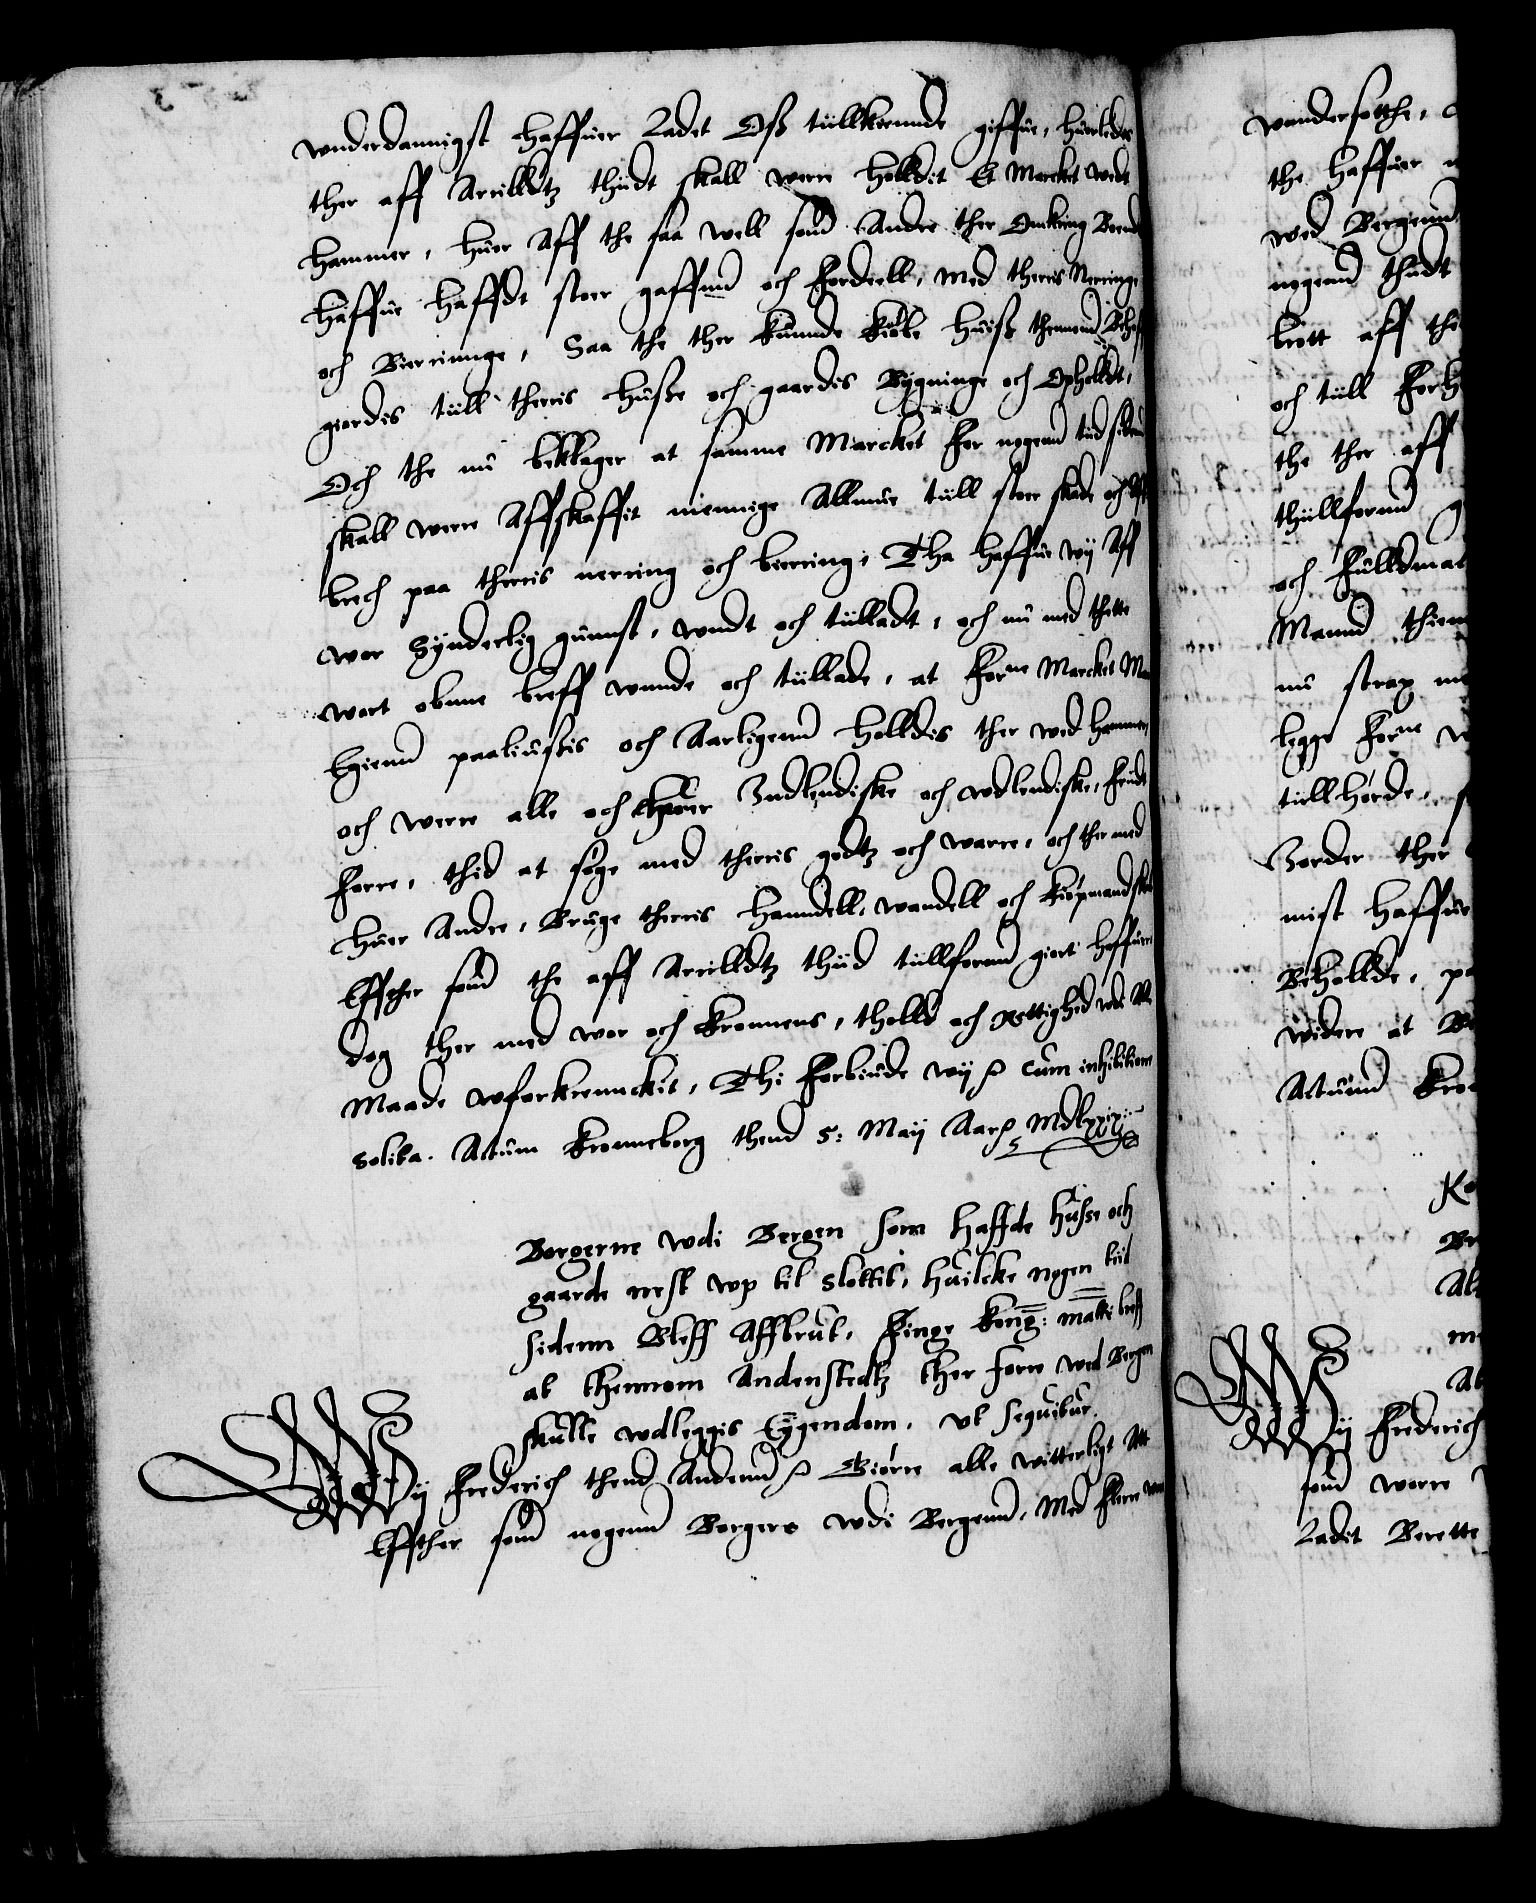 wnderdannigst haffuer Ladet Oss tiillkiennde giffue, huorledes
ther aff Arrilldtz thiidt skall were holldit Et Marcket wedt
Hammer, huer Aff the saa well som Andre ther Omkring Boend
haffue hafft stoer gaffnn och Fordeell, med theris Nerringe
och Bierriinge, Saa the ther kunnde kiøbe huiss thennom Behoff
giordis tiill theris Husse och gaardis Bygninge och Opholldt,
Och the nu beklager at samme Marcket For nogenn tiid siden
skall were Affskaffit menige Allmue tiill stoer skade och Aff
brech paa theris nerring och bierring, Tha haffue wij Aff
wor Synderlig gunnst, wndt och tiilladt, och nu med thette
wort obnne breff wnnde och tiillade, at Forne Marcket Maa
hereffter paaliusis och Aarligenn holldis ther wed Hammer,
och were alle och huer Indlendiske och wdlendiske, friidt
Forre, thid at søge med theris godtz och warre, och ther med
huer Andre, Bruge theris hanndell, wandell och kiøpmandskab
Effther som the aff Arrilldtz thiid tiillforenn giort haffuer
dog ther med wor och kronnens, tholld och Rettighed wdi Alle
Maade wforkrenncket, Thi Forbiude wij ꝛ Cum inhibitione
solita. Actum Kronneborg thend 5: Maij Aarꝛ Mdlxxix

Borgerne wdi Bergen som haffde husse och
gaarde nest wp til slottit, huilcke nogen tiid
sidenn Bleff Affbrut, Finge Kong: Matts breff
at thennom Andenstedtz ther forre wed Bergen
skulle wdleggis Eygendom, vt sequitur.
Wij Frederich thend Andenn ꝛ Giøre alle witterligt Att
Effther som nogenn Borgere wdi Bergenn, Med Flere wor

wandersotthe,
the haffuer
wed Bergenn
nogenn thiidt
brott aff
och tiill
the ther aff
thiillforenn
och Fulldmac
Mannd
nu strax
legge Forne
tiillhørde,
Jorder ther
mist haffue
Beholde,
widere at
Actumd Kro
Wij Frederich
som were
Ladit Berette